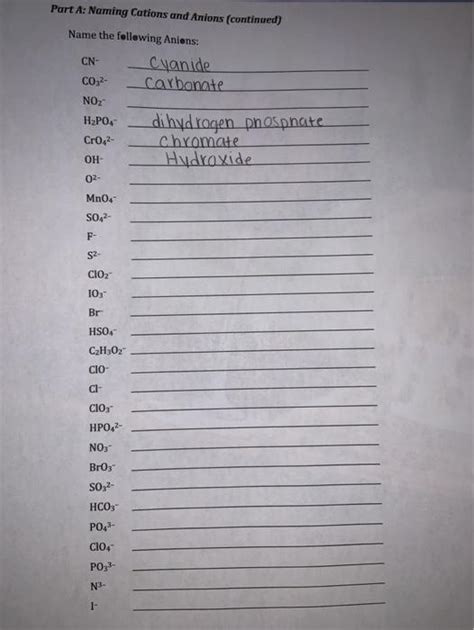 Part A: Naming Cations and Anions (continued)
Name the following Anions:
CN⁻ Cyanide
CO₃²⁻ Carbonate
NO₂⁻
H₂PO₄⁻ dihydrogen phosphate
CrO₄²⁻ Chromate
OH⁻ Hydroxide
O²⁻
MnO₄⁻
SO₄²⁻
F⁻
S²⁻
ClO₂⁻
IO₃⁻
Br⁻
HSO₄⁻
C₂H₃O₂⁻
ClO⁻
Cl⁻
ClO₃⁻
HPO₄²⁻
NO₃⁻
BrO₃⁻
SO₃²⁻
HCO₃⁻
PO₄³⁻
ClO₄⁻
PO₃³⁻
N³⁻
I⁻